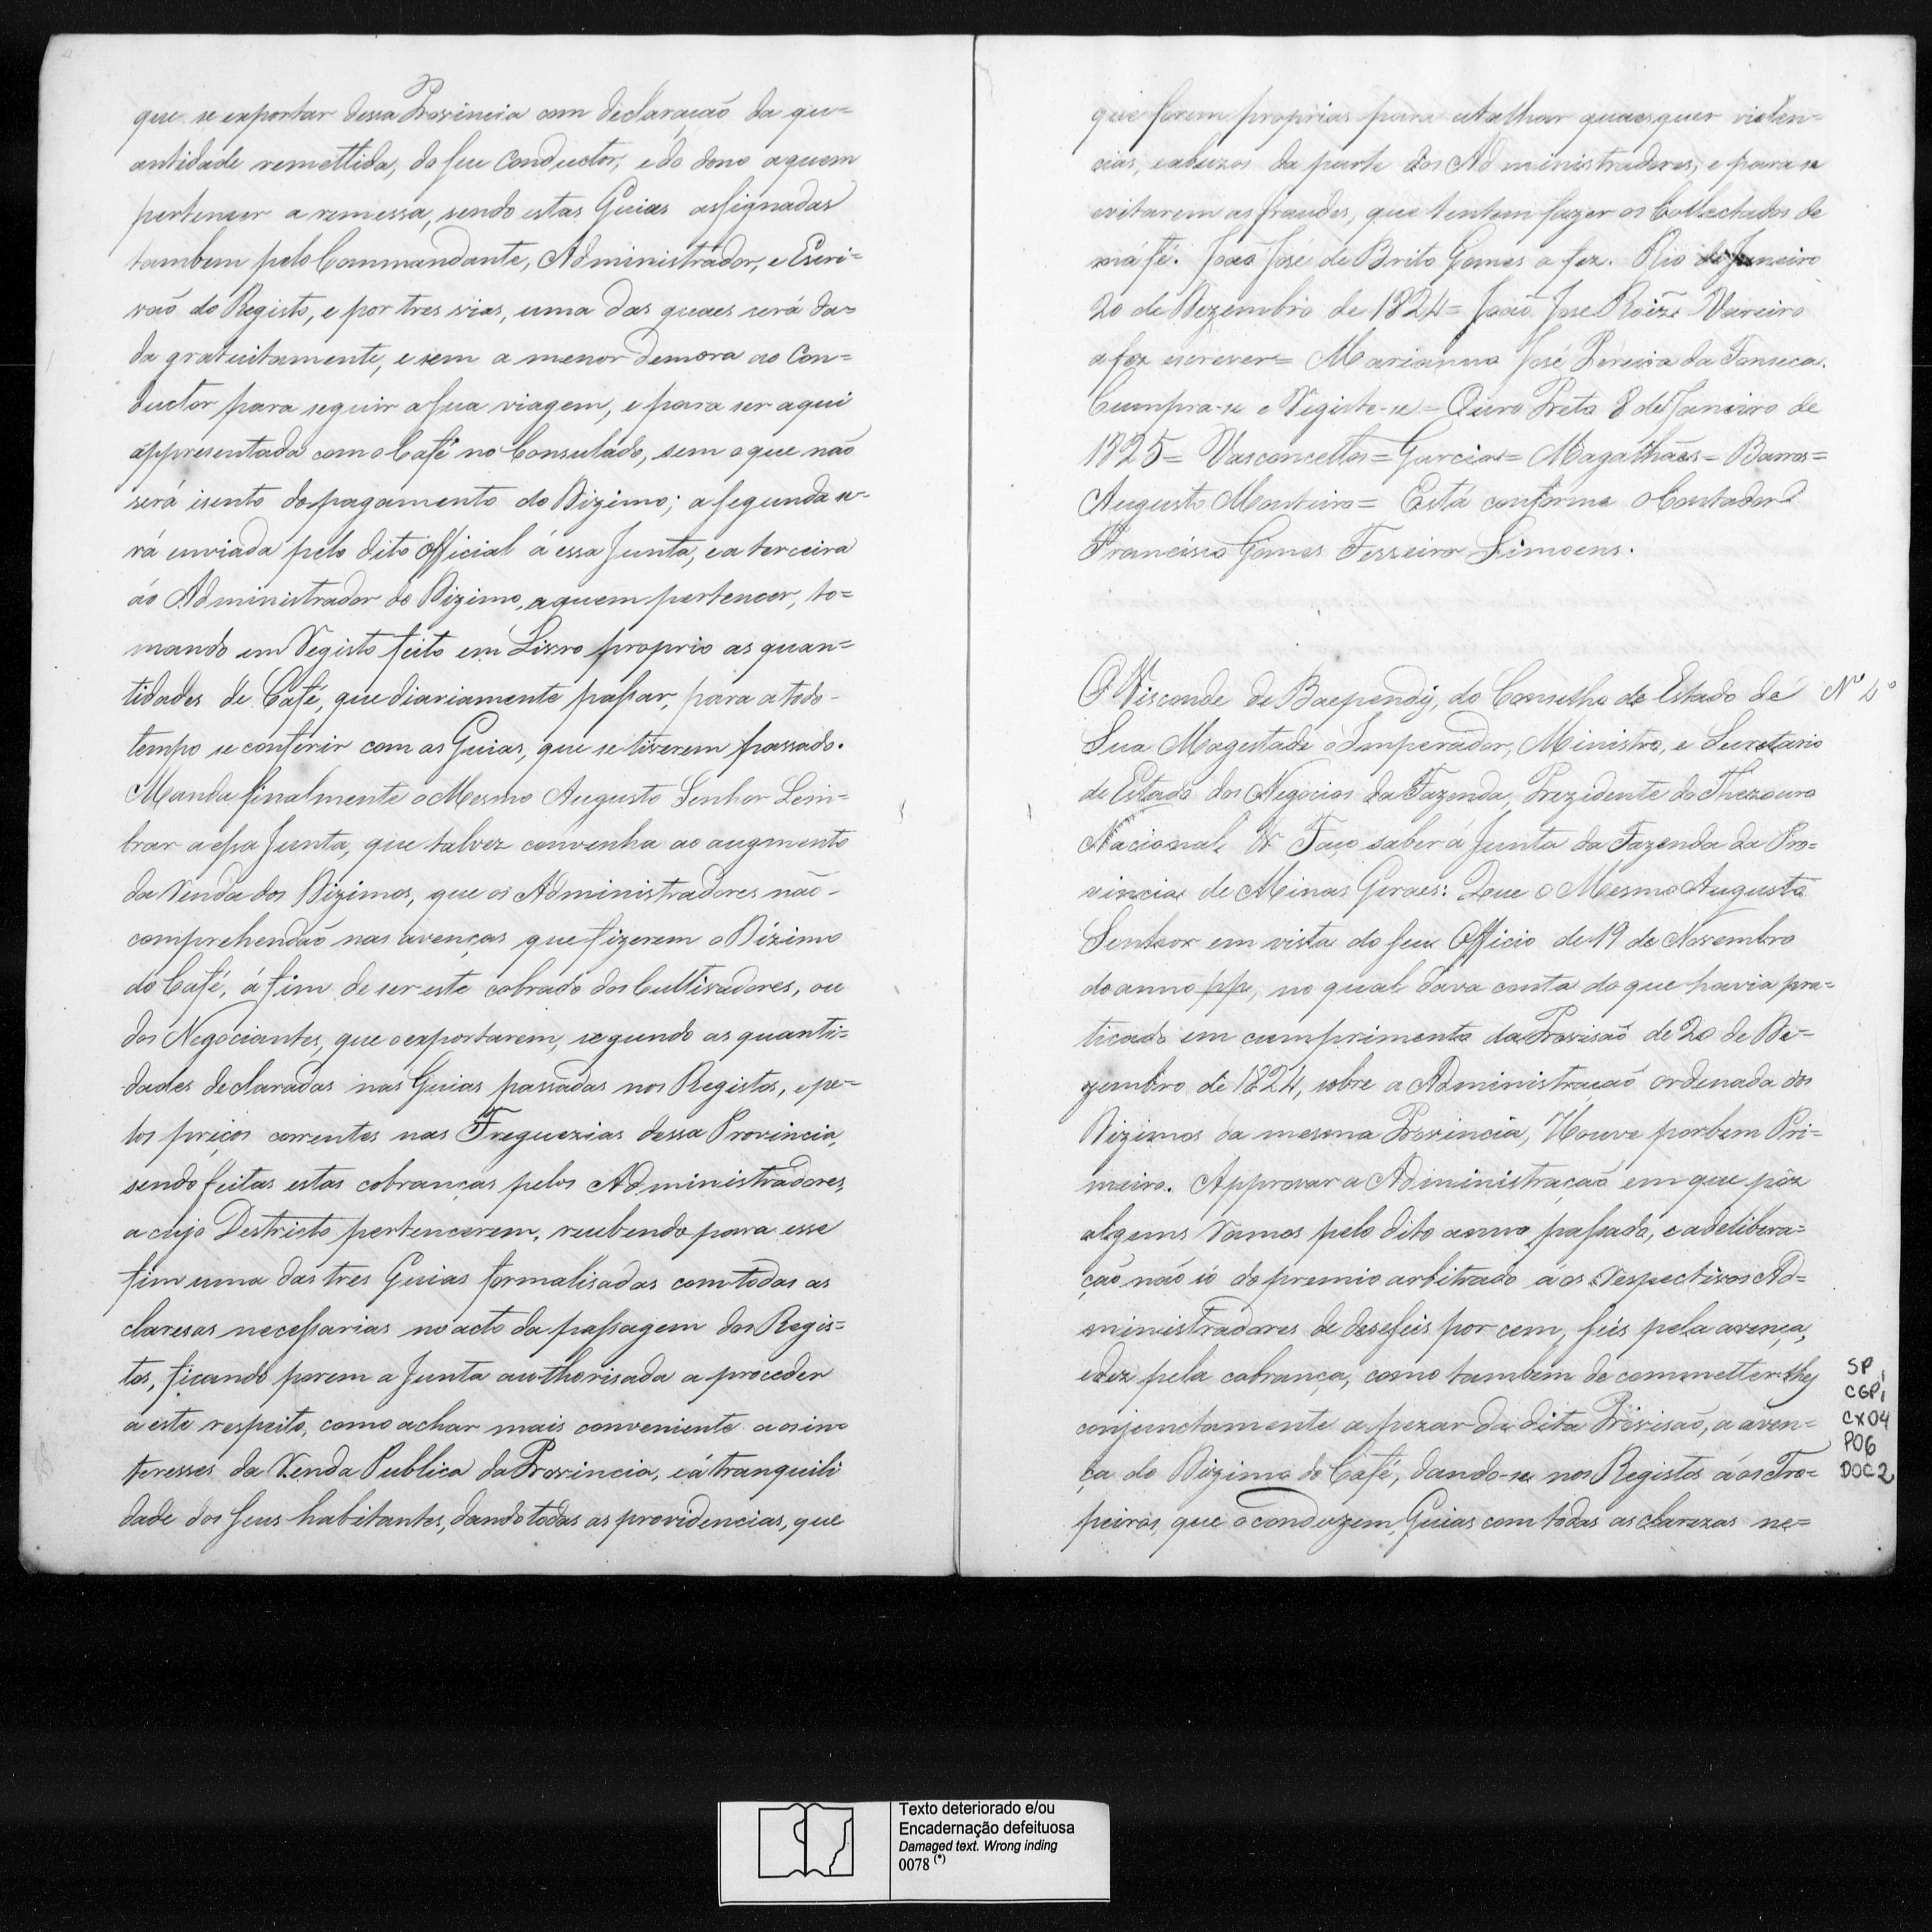 que se exportar dessa Provincia com declaração da qu-
antidade remettida, do seu Conductor, e do dono a quem
pertencer a remessa, sendo estas Guias assignadas
tambem pelo Commandante, Administrador, e Escri-
vaõ do Registo, e por tres vias, uma das quaes será da-
da gratuitamente, e sem a menor demora ao Con-
ductor para seguir a sua viagem, e para ser aqui
appresentada com o Café no Consulado, sem o que naõ
será isento do pagamento do Dizimo; a segunda se-
rá enviada pelo dito Official á essa Junta, e a terceira
áo Administrador do Dizimo, a quem pertencer, to-
mando em Registo feito em Livro proprio as quan-
tidades de Café, que diariamente passar, para a todo-
tempo se conferir com as Guias, que se tiverem passado.
Manda finalmente o Mesmo Augusto Senhor Lem-
brar a essa Junta, que talvez convenha ao augmento
da Renda dos Dizimos, que os Administradores naõ-
comprehendaõ nas avenças que fizerem o Dizimo
do Café, á fim de ser este cobrado dos Cultivadores, ou
dos Negociantes, que o exportarem, segundo as quanti-
dades declaradas nas Guias passadas nos Registos, e pe-
los preços correntes nas Freguezias dessa Provincia,
sendo feitas estas cobranças pelos Administradores,
a cujo Destricto pertencerem, recebendo para esse
fim uma das tres Guias formalisadas com todas as
claresas necessarias no acto da passagem dos Regis-
tos, ficando porem a Junta authorisada a proceder
a este respeito, como achar mais conveniente aos in-
teresses da Renda Publica da Provincia, e á tranquili
dade dos seus habitantes, dando todas as providencias, que
que forem proprias para atalhar quaesquer violen-
cias, e abuzos da parte dos Administradores, e para se
evitarem as fraudes, que tentem fazer os Collectados de
má fé. João José de Brito Gomes a fez. Rio de Janeiro
20 de Dezembro de 1824= João Jose Roiz Vareiro
a fez escrever= Marianno José Pereira da Fonseca.
Cumpra-se e Registe-se= Ouro Preto 8 de Janeiro de
1825= Vasconcellos= Garcia= Magalhães= Barros=
Augusto Monteiro= Está conforme o Contador
Francisco Gomes Ferreira Simoens.
O Visconde de Baependy, do Conselho de Estado de Nº 2º
Sua Magestade o Imperador, Ministro, e Secretario
de Estado dos Negocios da Fazenda, Prezidente do Thezouro
Nacional & Faço saber á Junta da Fazenda da Pro-
vincia de Minas Geraes: Que o Mesmo Augusto
Senhor em vista do seu Officio de 19 de Novembro
do anno pp, no qual dava conta do que havia pra-
ticado em cumprimento da Provisaõ de 20 de De-
zembro de 1824, sobre a Administraçaõ ordenada dos
Dizimos da mesma Provincia, Houve por bem Pri-
meiro. Approvar a Administraçaõ em que pôz
alguns Ramos pelo dito anno passado, e a delibera-
ção não só do premio arbitrado áos Respectivos Ad-
ministradores de deseseis por cem, seis pela avença,
e dez pela cobrança, como tambem de commetter-lhes
conjunctamente a pezar da dita Provisaõ, a aven-
ça do Dizimo do Café, dando-se nos Registos áos Tro-
peiros, que o conduzem, Guias com todas as clarezas ne-
SP
CGP1
CX04
P06
DOC2
Texto deteriorado e/ou
Encadernação defeituosa
Damaged text. Wrong inding
0078 (*)